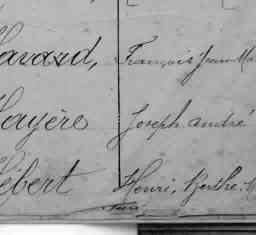 Havard, François Jean Ma
Hayère Joseph André
Hébert Henri, Berthe, M